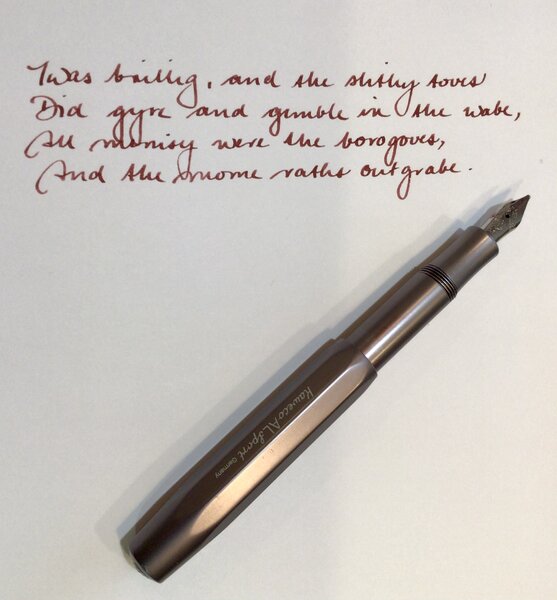 Twas brillig, and the slithy toves
Did gyre and gimble in the wabe,
All mimsy were the borogoves,
And the mome raths outgrabe.
Kaweco AL Sport Germany